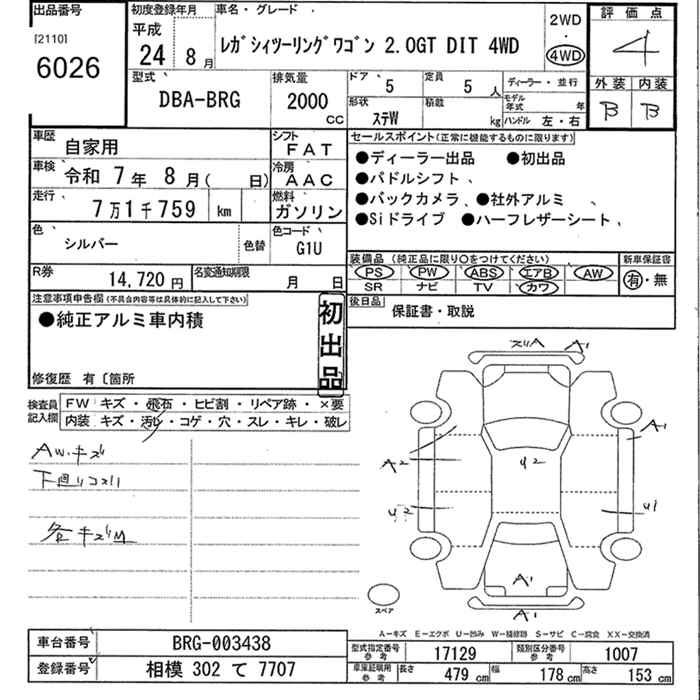 出品番号
[2110]
6026
初度登録年月
平成
24 8月
車名・グレード
ﾚｶﾞｼｨﾂｰﾘﾝｸﾞﾜｺﾞﾝ 2.0GT DIT 4WD
2WD
・
4WD
評価点
4
型式
DBA-BRG
排気量
2000
CC
ドア
5
定員
5 人
ディーラー・並行
形状
ｽﾃW
積載
kg
モデル年式 年
ハンドル 左・右
外装 内装
B B
車歴
自家用
シフト
FAT
車検
令和 7年 8月( 日)
冷房
AAC
走行
7万1千759 km
燃料
ガソリン
色
シルバー
色替
色コード
G1U
R券
14,720円
名変通知期限
月 日
セールスポイント(正常に機能するものに限ります)
●ディーラー出品 ●初出品
●パドルシフト、
●バックカメラ、●社外アルミ 、
●Siドライブ ●ハーフレザーシート、
装備品 (純正品に限り○をつけてください)
PS PW ABS エアB AW
SR ナビ TV カワ
新車保証書
有・無
後日品
保証書・取説
注意事項申告欄(不具合内容等は具体的に記入して下さい)
●純正アルミ車内積
初出品
修復歴 有〔箇所
検査員記入欄
FW キズ・飛石・ヒビ割・リペア跡・×要
内装 キズ・汚レ・コゲ・穴・スレ・キレ・破レ
AW.キズ
下廻りコスリ
各キズM
スリA A1
A1
A2
U2
U2
U1
A1
A1
スペア
A－キズ E－エクボ U－凹み W－補修跡 S－サビ C－腐食 XX－交換済
車台番号
BRG-003438
登録番号
相模 302 て 7707
型式指定番号 参考
17129
類別区分番号 参考
1007
車庫証明用 参考
長さ 479 cm 幅 178 cm 高さ 153 cm